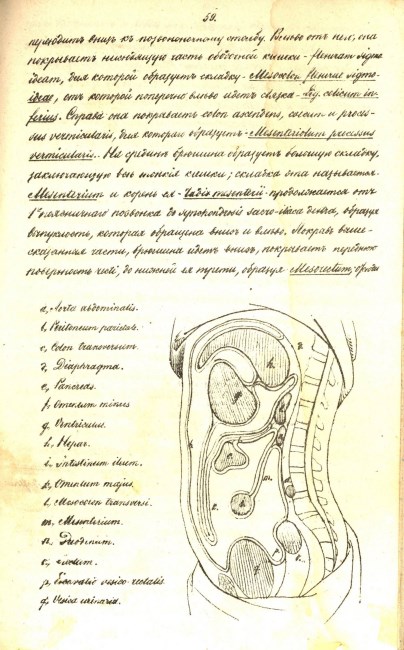 59.
внизъ къ позвоночному столбу. Влѣво отъ нея, она
покрываетъ нижнюю часть ободочной кишки - flexuram sigmo
ideam, для которой образуетъ складку - Mesocolon flexurae sigmo-
ideae, отъ которой поперечно влѣво идетъ связка - Lig. colicum in-
ferius. Справа она покрываетъ colon ascendens, coecum и proces-
sus vermicularis, для котораго образуетъ - Mesenteriolum processus
vermicularis. На срединѣ брюшина образуетъ большую складку,
заключающую въ тонкія кишки; складка эта называется -
Mesenterium и корень ея - Radix mesenterii - продолжается отъ
1го поясничнаго позвонка до symphondrosis sacro-iliaca dextra, образуя
выпуклость, которая обращена внизъ и влѣво. Покрывъ выше-
сказанныя части, брюшина идетъ внизъ, покрываетъ переднюю
поверхность recti, до нижней ея трети, образуя Mesorectum,
a, Aorta abdominalis.
b, Peritoneum parietale.
c, Colon transversum.
d, Diaphragma.
e, Pancreas.
f, Omentum minus
g, Ventriculus.
h, Hepar.
i, Intestinum ileum.
k, Omentum majus.
l, Mesocolon transversi.
m, Mesenterium.
n, Duodenum.
o, rectum.
p, Excavatio vesico-rectalis
q, Vesica urinaria.